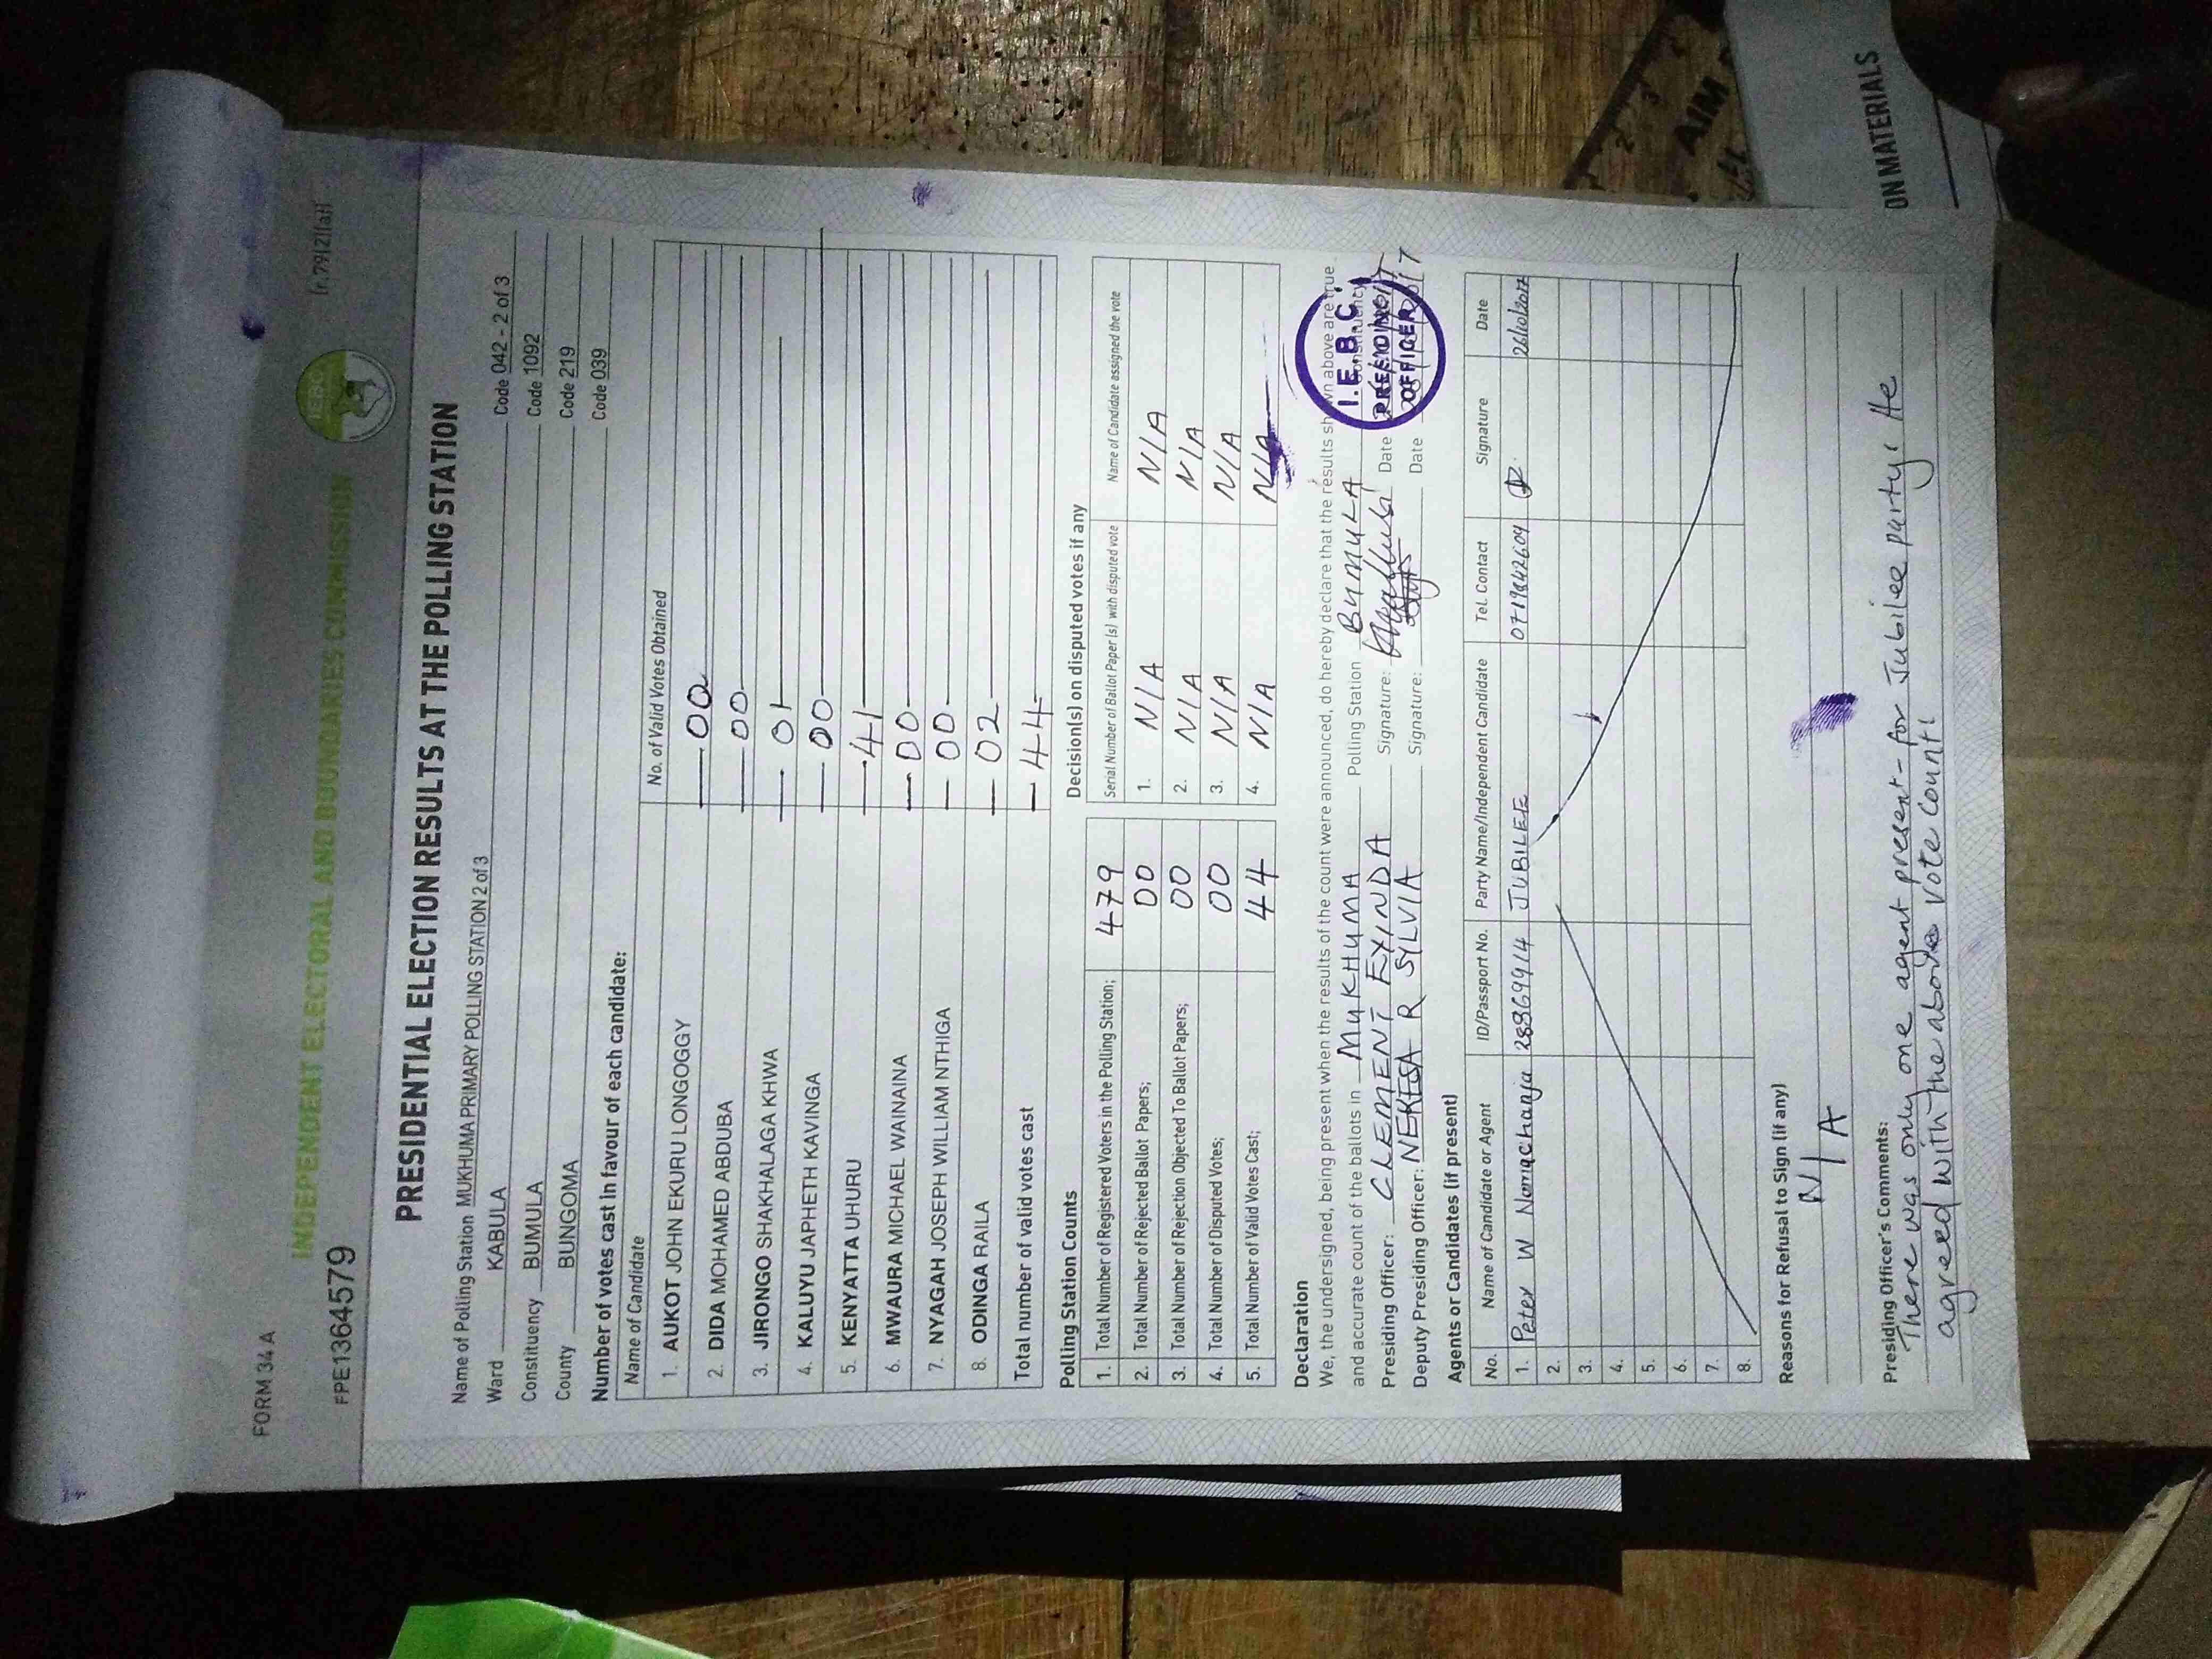 FORM 34 A
[r.79(2)(a)]
INDEPENDENT ELECTORAL AND BOUNDARIES COMMISSION
IEBC
FPE1364579
PRESIDENTIAL ELECTION RESULTS AT THE POLLING STATION
Name of Polling Station MUKHUMA PRIMARY POLLING STATION 2 of 3 Code 042 - 2 of 3
Ward KABULA Code 1092
Constituency BUMULA Code 219
County BUNGOMA Code 039
Number of votes cast in favour of each candidate:
Name of Candidate No. of Valid Votes Obtained
1. AUKOT JOHN EKURU LONGOGGY 00
2. DIDA MOHAMED ABDUBA 00
3. JIRONGO SHAKHALAGA KHWA 01
4. KALUYU JAPHETH KAVINGA 00
5. KENYATTA UHURU 41
6. MWAURA MICHAEL WAINAINA 00
7. NYAGAH JOSEPH WILLIAM NTHIGA 00
8. ODINGA RAILA 02
Total number of valid votes cast 44
Polling Station Counts
1. Total Number of Registered Voters in the Polling Station; 479
2. Total Number of Rejected Ballot Papers; 00
3. Total Number of Rejection Objected To Ballot Papers; 00
4. Total Number of Disputed Votes; 00
5. Total Number of Valid Votes Cast; 44
Decision(s) on disputed votes if any
Serial Number of Ballot Paper (s) with disputed vote Name of Candidate assigned the vote
1. N/A N/A
2. N/A N/A
3. N/A N/A
4. N/A N/A
Declaration
We, the undersigned, being present when the results of the count were announced, do hereby declare that the results shown above are true
and accurate count of the ballots in MUKHUMA Polling Station BUMULA Constituency
Presiding Officer: CLEMENT EXINDA Signature: Date
Deputy Presiding Officer: NEKESA R SYLVIA Signature: Date
I.E.B.C.
PRESIDING
OFFICER
Agents or Candidates (if present)
No. Name of Candidate or Agent ID/Passport No. Party Name/Independent Candidate Tel. Contact Signature Date
1. Peter W Namachanja 28869914 JUBILEE 0719642609 26/10/2017
2.
3.
4.
5.
6.
7.
8.
Reasons for Refusal to Sign (if any)
N/A
Presiding Officer's Comments:
There was only one agent present - for Jubilee party. He
agreed with the above vote count.
ON MATERIALS
AIM